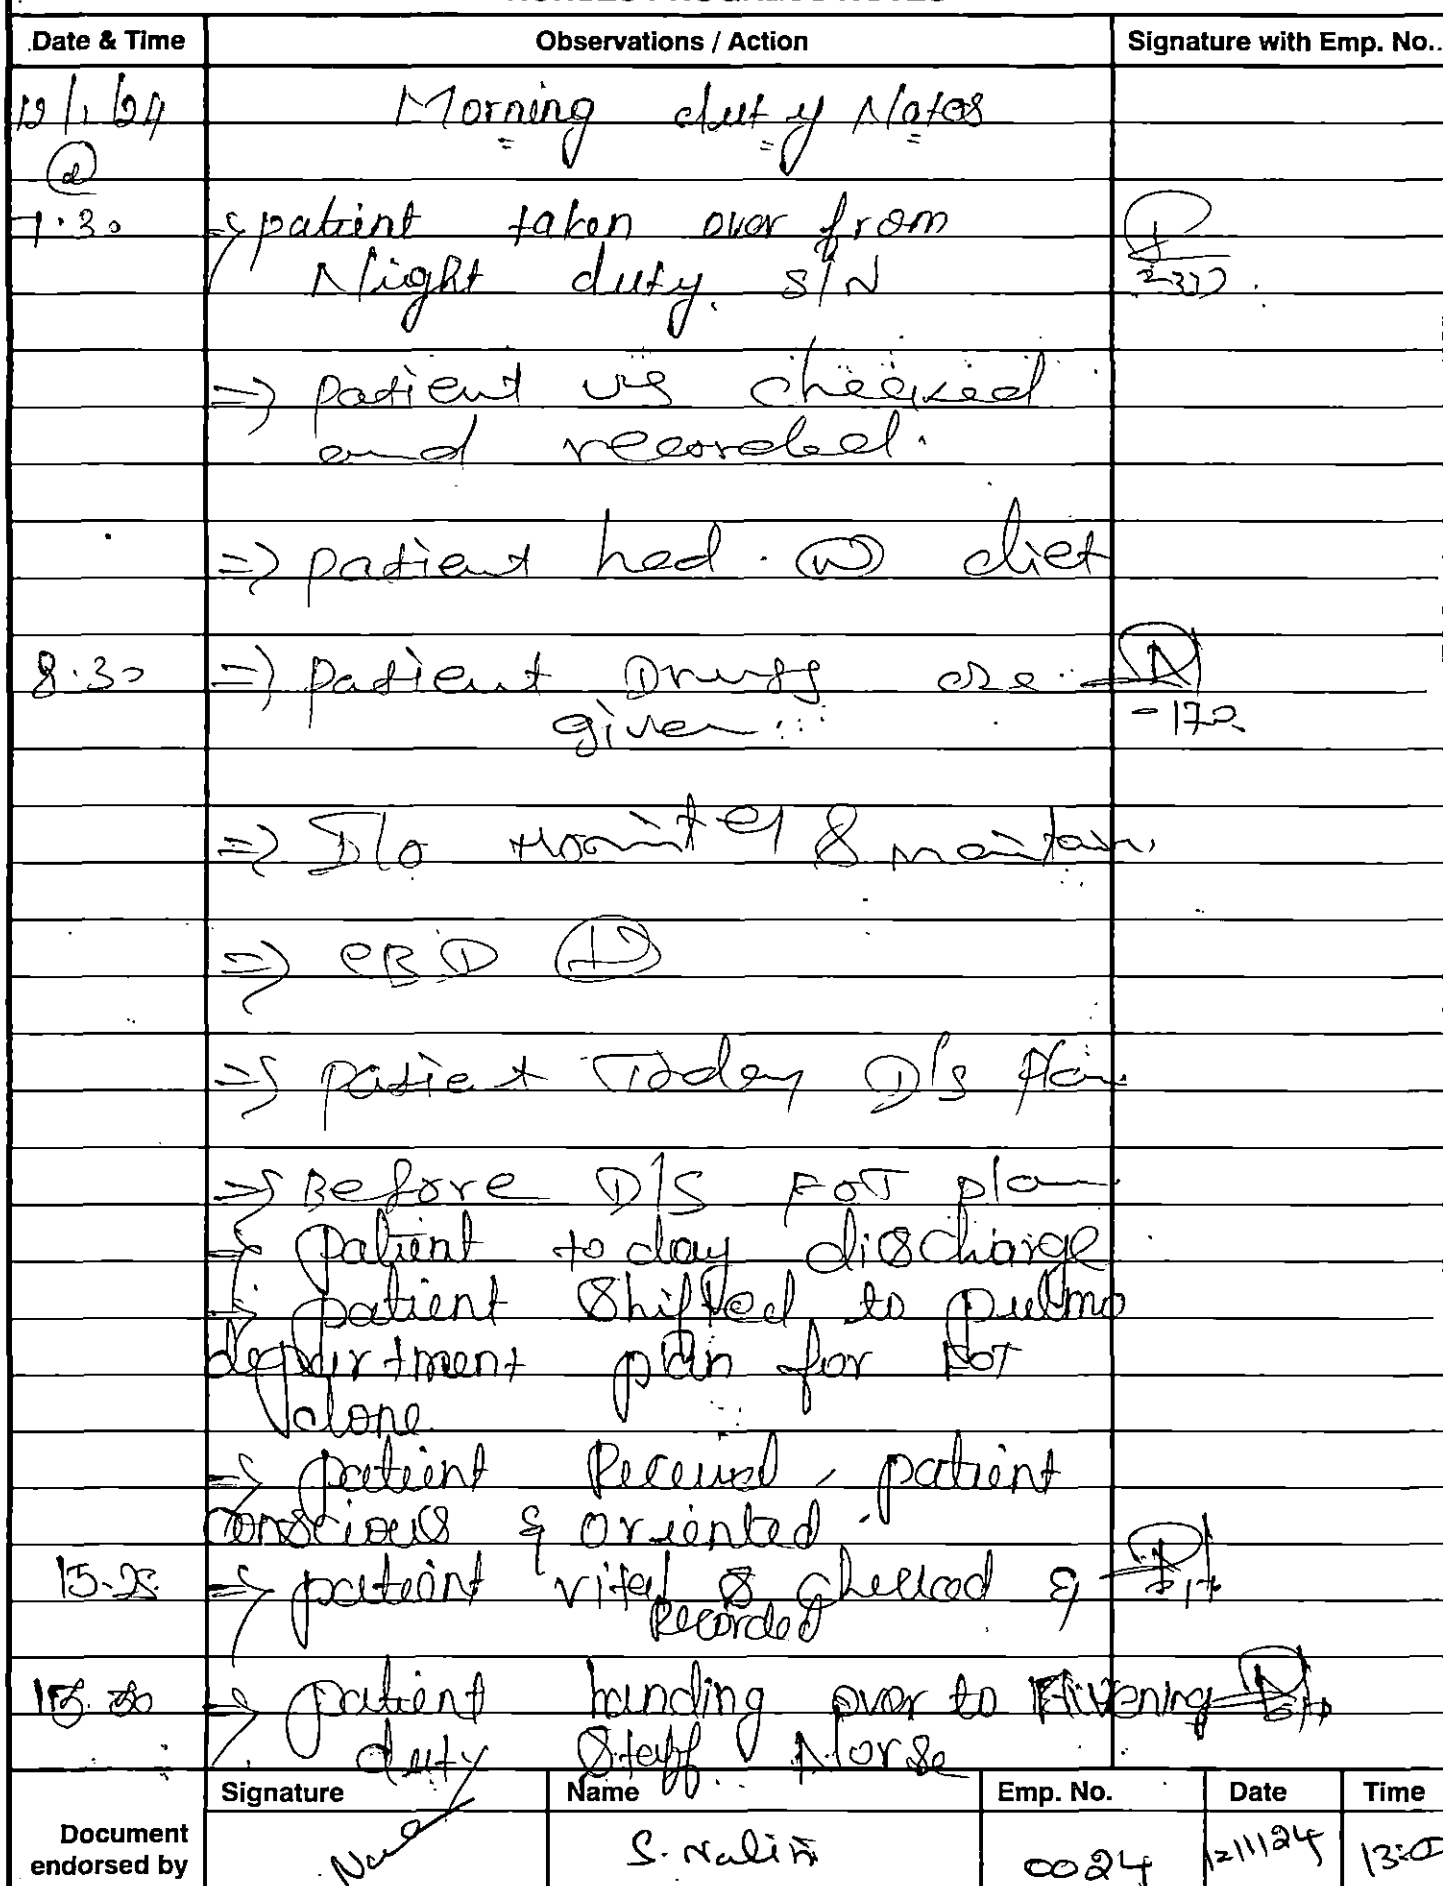 Date & Time Observations / Action Signature with Emp. No..
12/1/24 Morning duty Notes
@
7.30 => patient taken over from
Night duty. S/N
=> patient v/s cheeked
and recorded.
=> patient had (N) diet
8.30 => patient Drugs are
given
-172
=> I/o Monitor & maintain.
=> CBD (+)
=> patient Today D/s plan
=> Before D/S FOT plan
=> patient to day discharge
=> patient Shifted to pulmo
department plan for FOT
done
=> patient Received, patient
conscious & oriented.
15.25 => patient vital s checked &
Recorded
=> patient handing over to Evening
duty Staff Norse
Signature Name Emp. No. Date Time
Document
endorsed by S. Nalini 0024 12/1/24